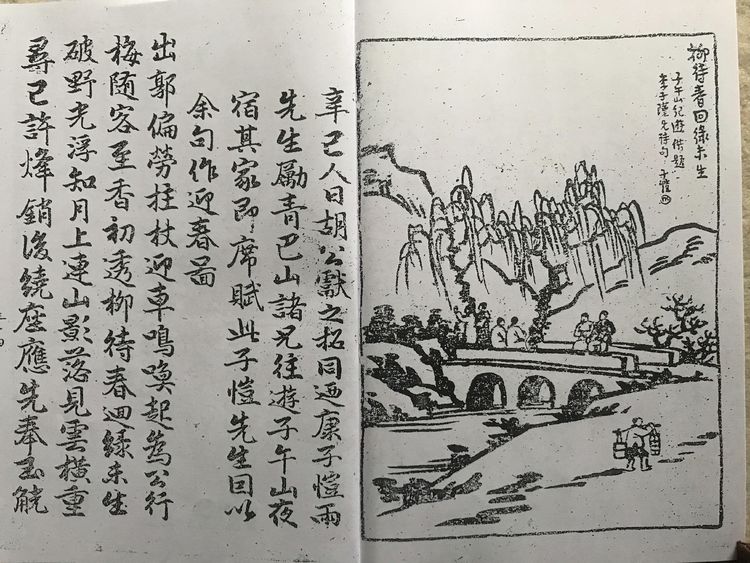 柳待春回綠未生
子午山紀遊 借題
李子瑾兄詩句 子愷
辛巳人日胡公獻之招同迺康子愷兩
先生勵青巴山諸兄往遊子午山夜
宿其家即席賦此子愷先生囙以
余句作迎春啚
出郭偏勞拄杖迎車鳴喚起為公行
梅隨客至香初透柳待春迴綠未生
破野光浮知月上連山影落見雲橫重
尋已許烽銷後繞座應先奉玉觥